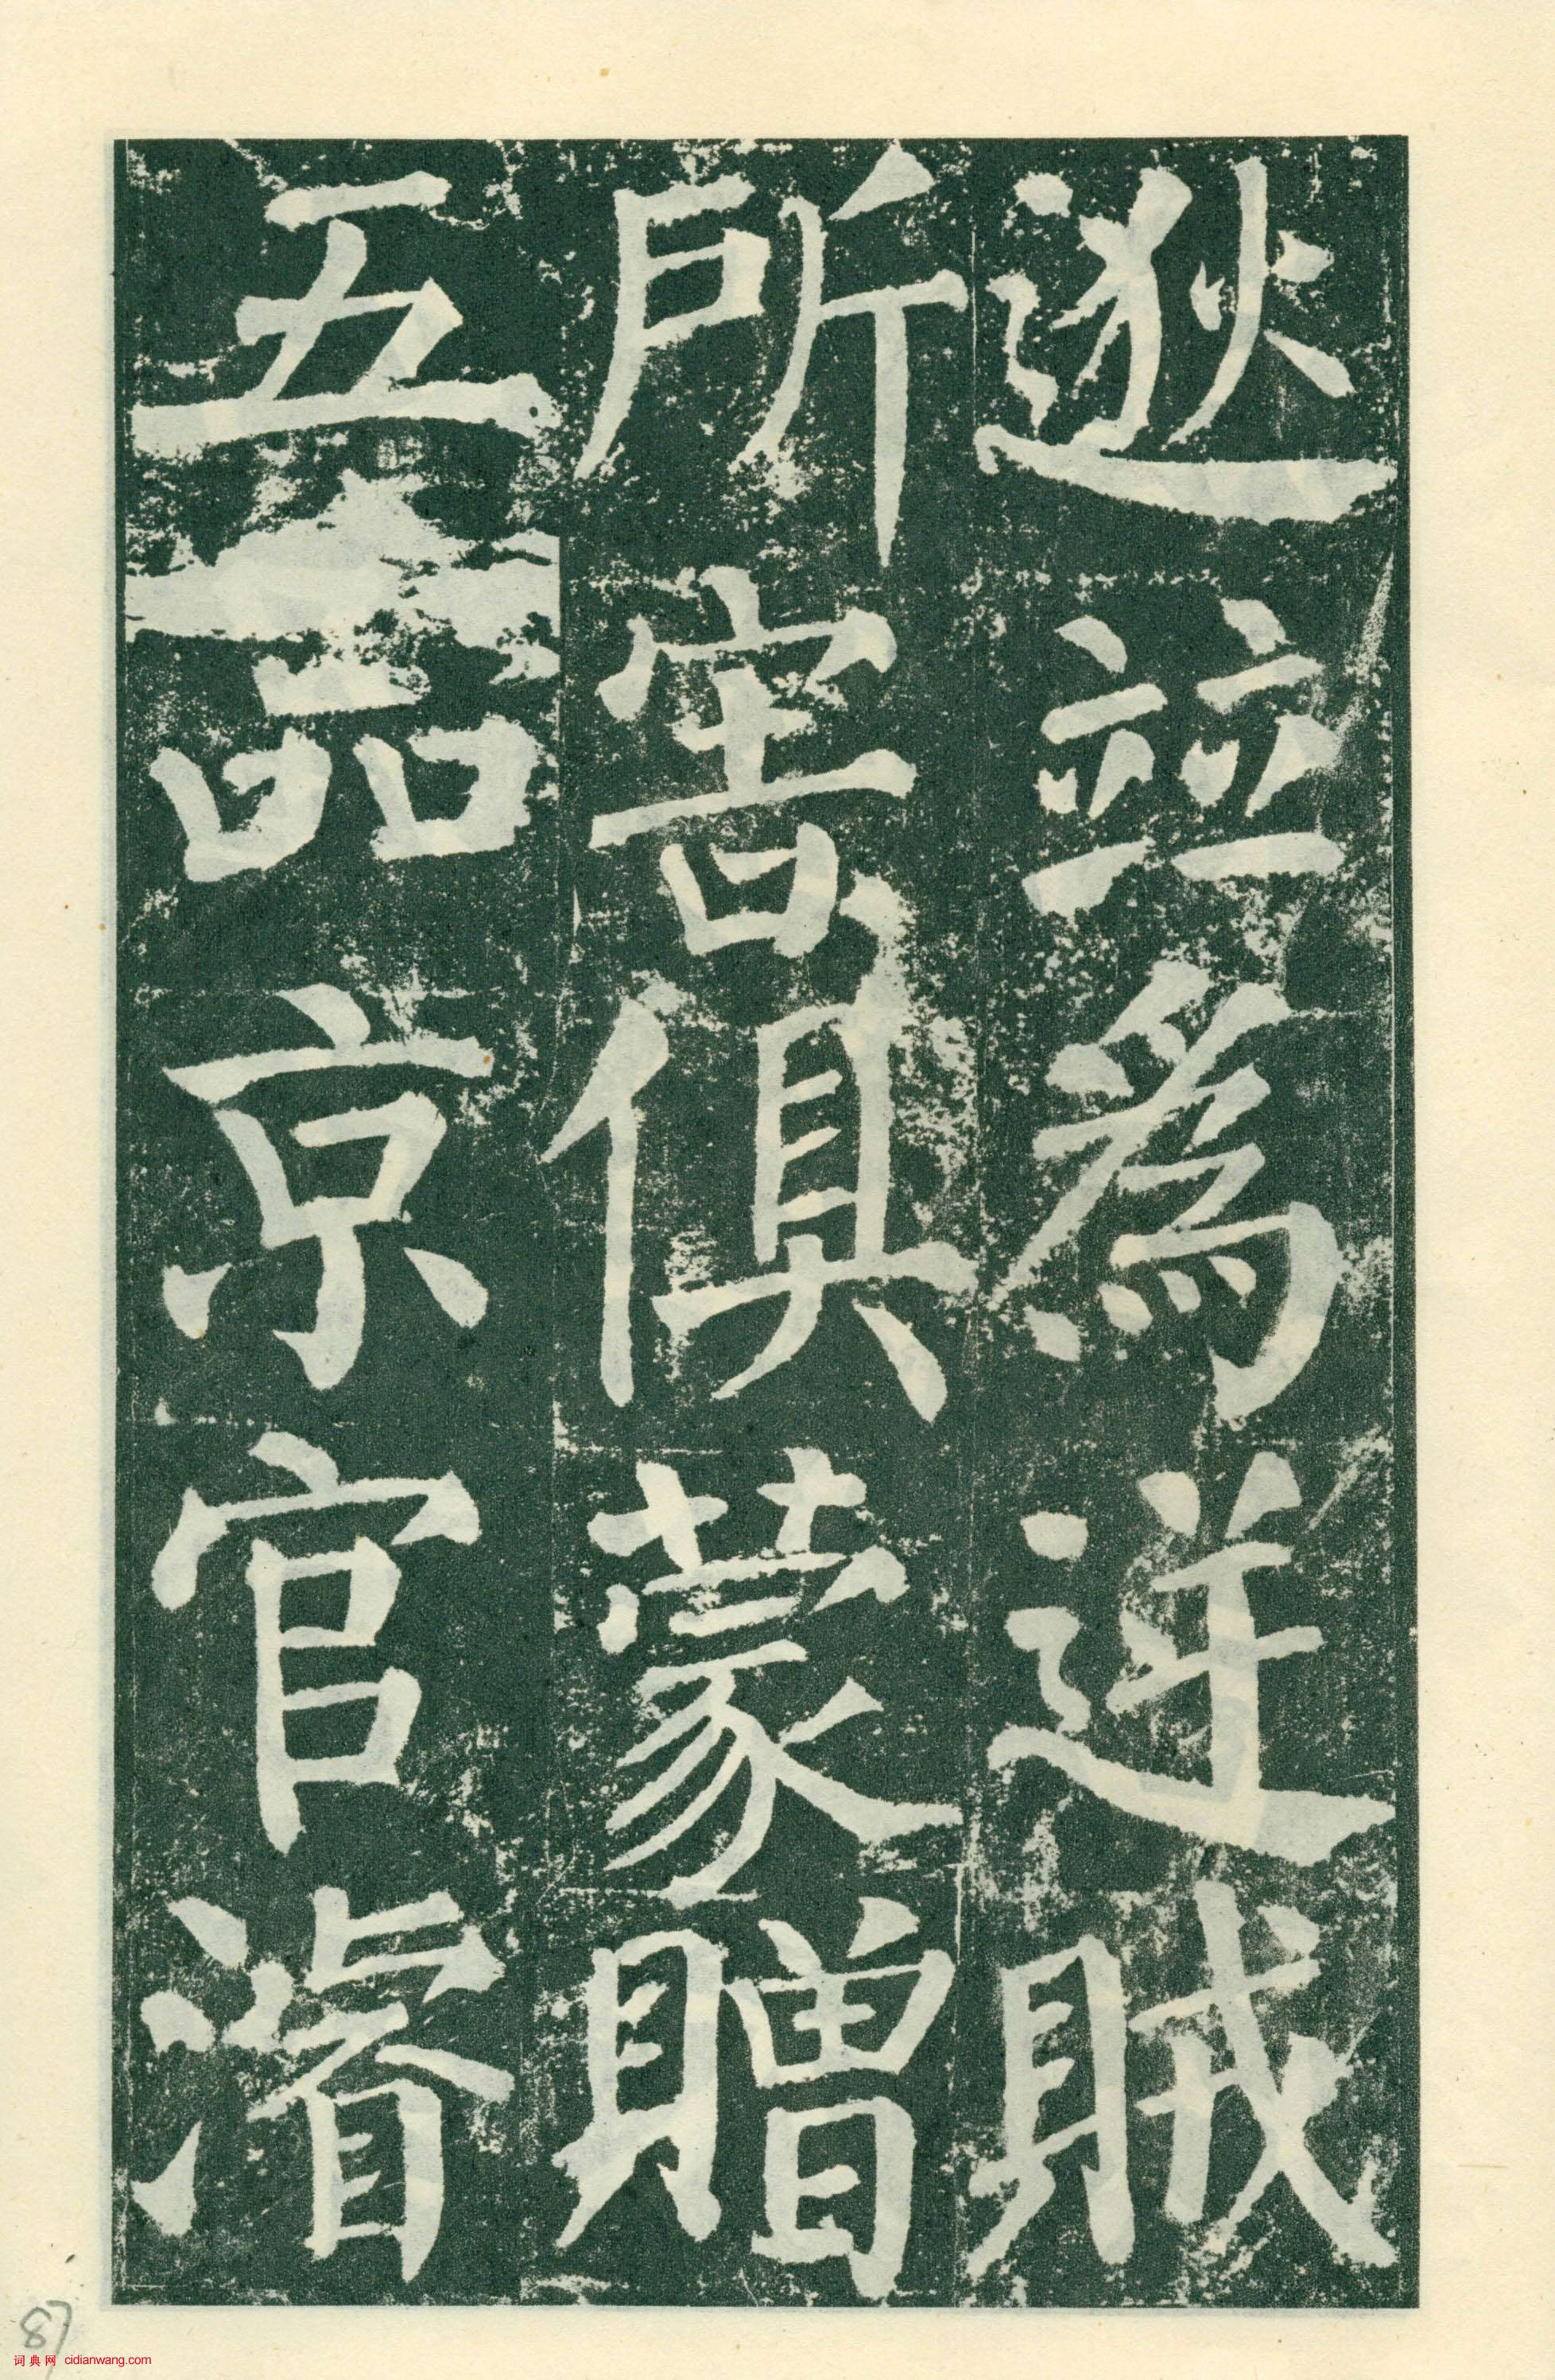 逖並為逆賊
所害俱蒙贈
五品京官濬
87
词典网 cidianwang.com